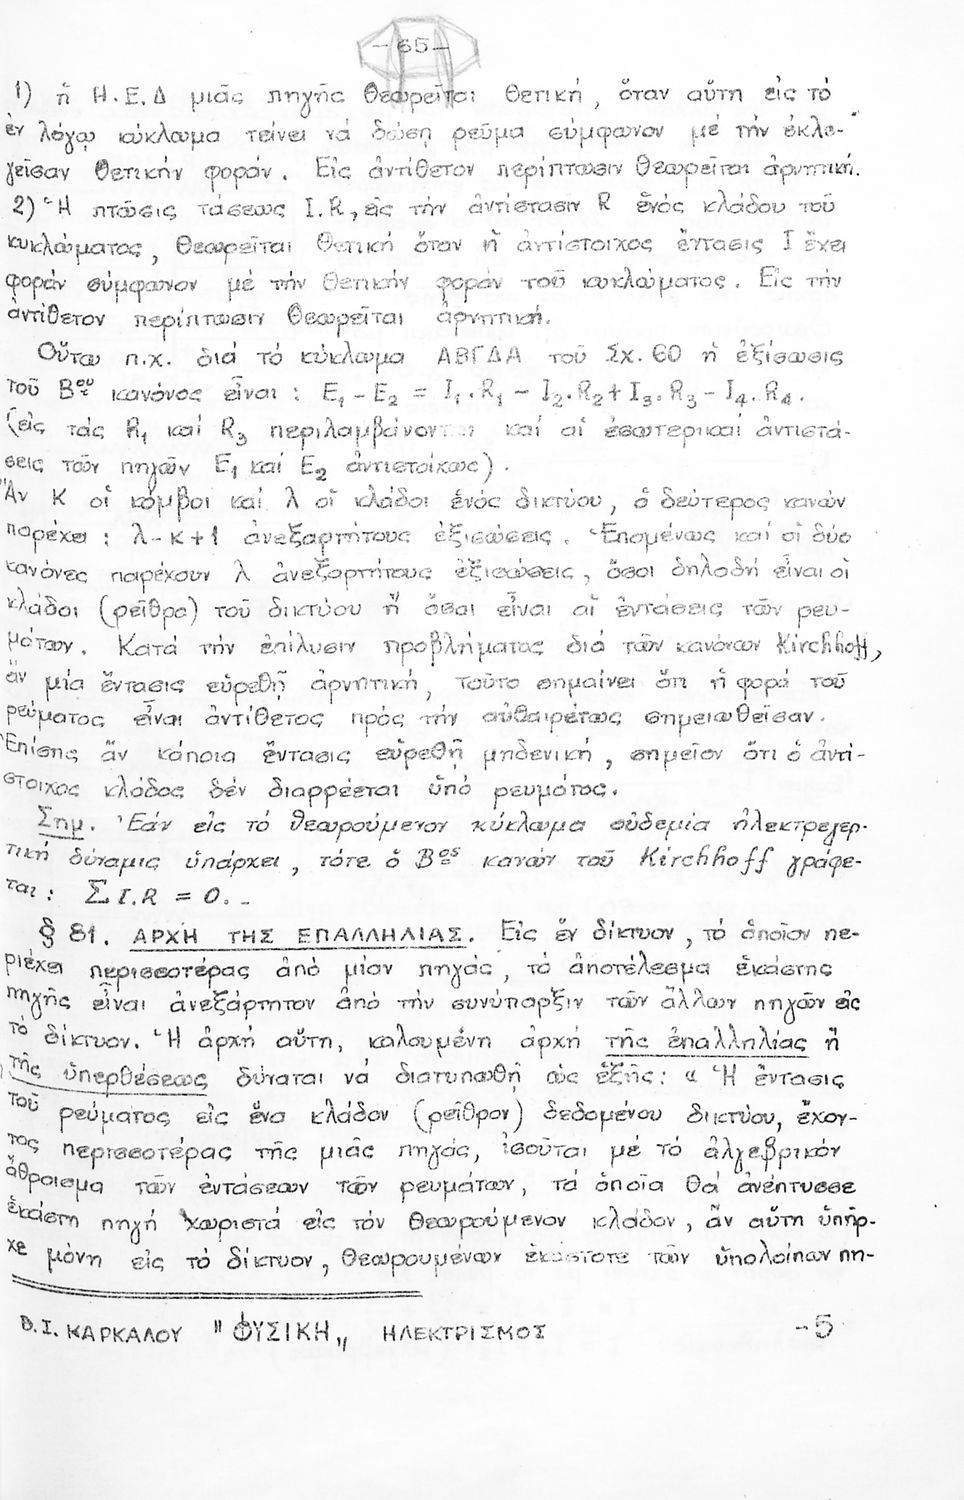 -65-
1) ἡ Η.Ε.Δ μιᾶς πηγῆς θεωρεῖται θετική, ὅταν αὕτη εἰς τό
ἐν λόγῳ κύκλωμα τείνει νά δώσῃ ρεῦμα σύμφωνον μέ τήν ἐκλε-
γεῖσαν θετικήν φοράν. Εἰς ἀντίθετον περίπτωσιν θεωρεῖται ἀρνητική.
2) Ἡ πτῶσις τάσεως I.R, εἰς τήν ἀντίστασιν R ἑνός κλάδου τοῦ
κυκλώματος, θεωρεῖται θετική ὅταν ἡ ἀντίστοιχος ἔντασις I ἔχει
φοράν σύμφωνον μέ τήν θετικήν φοράν τοῦ κυκλώματος. Εἰς τήν
ἀντίθετον περίπτωσιν θεωρεῖται ἀρνητική.
Οὕτω π.χ. διά τό κύκλωμα ΑΒΓΔΑ τοῦ Σχ. 60 ἡ ἐξίσωσις
τοῦ Βου κανόνος εἶναι : E₁ - E₂ = I₁.R₁ - I₂.R₂ + I₃.R₃ - I₄.R₄.
(εἰς τάς R₁ καί R₃ περιλαμβάνονται καί αἱ ἐσωτερικαί ἀντιστά-
σεις τῶν πηγῶν E₁ καί E₂ ἀντιστοίχως).
Ἄν Κ οἱ κόμβοι καί λ οἱ κλάδοι ἑνός δικτύου, ὁ δεύτερος κανών
παρέχει : λ-κ+1 ἀνεξαρτήτους ἐξισώσεις. Ἑπομένως καί οἱ δύο
κανόνες παρέχουν λ ἀνεξαρτήτους ἐξισώσεις, ὅσοι δηλαδή εἶναι οἱ
κλάδοι (ρεῖθρα) τοῦ δικτύου ἤ ὅσαι εἶναι αἱ ἐντάσεις τῶν ρευ-
μάτων. Κατά τήν ἐπίλυσιν προβλήματος διά τῶν κανόνων Kirchhoff,
ἄν μία ἔντασις εὑρεθῇ ἀρνητική, τοῦτο σημαίνει ὅτι ἡ φορά τοῦ
ρεύματος εἶναι ἀντίθετος πρός τήν αὐθαιρέτως σημειωθεῖσαν.
Ἐπίσης ἄν κάποια ἔντασις εὑρεθῇ μηδενική, σημεῖον ὅτι ὁ ἀντί-
στοιχος κλάδος δέν διαρρέεται ὑπό ρεύματος.
Σημ. Ἐάν εἰς τό θεωρούμενον κύκλωμα οὐδεμία ἠλεκτρεγερ-
τική δύναμις ὑπάρχει, τότε ὁ Βος κανών τοῦ Kirchhoff γράφε-
ται : Σ I.R = 0. -
§ 81. ΑΡΧΗ ΤΗΣ ΕΠΑΛΛΗΛΙΑΣ. Εἰς ἕν δίκτυον, τό ὁποῖον πε-
ριέχει περισσοτέρας ἀπό μίαν πηγάς, τό ἀποτέλεσμα ἑκάστης
πηγῆς εἶναι ἀνεξάρτητον ἀπό τήν συνύπαρξιν τῶν ἄλλων πηγῶν εἰς
τό δίκτυον. Ἡ ἀρχή αὕτη, καλουμένη ἀρχή τῆς ἐπαλληλίας ἤ
τῆς ὑπερθέσεως δύναται νά διατυπωθῇ ὡς ἑξῆς: « Ἡ ἔντασις
τοῦ ρεύματος εἰς ἕνα κλάδον (ρεῖθρον) δεδομένου δικτύου, ἔχον-
τος περισσοτέρας τῆς μιᾶς πηγάς, ἰσοῦται μέ τό ἀλγεβρικόν
ἄθροισμα τῶν ἐντάσεων τῶν ρευμάτων, τά ὁποῖα θά ἀνέπτυσσε
ἑκάστη πηγή χωριστά εἰς τόν θεωρούμενον κλάδον, ἄν αὕτη ὑπῆρ-
χε μόνη εἰς τό δίκτυον, θεωρουμένων ἑκάστοτε τῶν ὑπολοίπων πη-
Β.Ι. ΚΑΡΚΑΛΟΥ "ΦΥΣΙΚΗ„ ΗΛΕΚΤΡΙΣΜΟΣ -5